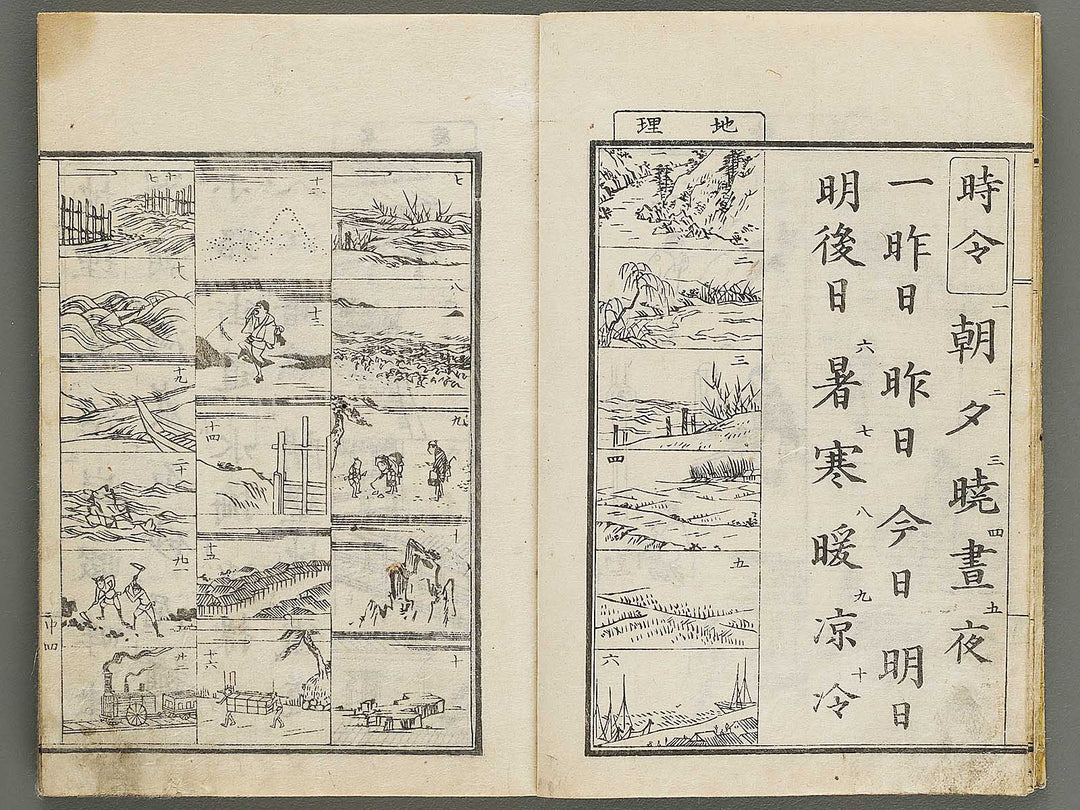 時令 一朝 二夕 三曉 四晝 五夜
一昨日 昨日 今日 明日
明後日 六暑 七寒 八暖 九凉 十冷
地理
二
三
四
五
六
七
八
九
十
十二
十三
十四
十五
十六
十七
十九
二十
廿一
廿二